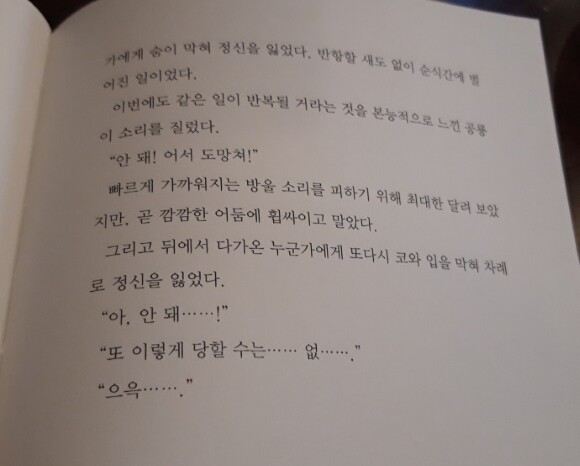 가에게 숨이 막혀 정신을 잃었다. 반항할 새도 없이 순식간에 벌
어진 일이었다.
이번에도 같은 일이 반복될 거라는 것을 본능적으로 느낀 공룡
이 소리를 질렀다.
“안 돼! 어서 도망쳐!”
빠르게 가까워지는 방울 소리를 피하기 위해 최대한 달려 보았
지만, 곧 깜깜한 어둠에 휩싸이고 말았다.
그리고 뒤에서 다가온 누군가에게 또다시 코와 입을 막혀 차례
로 정신을 잃었다.
“아, 안 돼……!”
“또 이렇게 당할 수는…… 없…….”
“으윽…….”